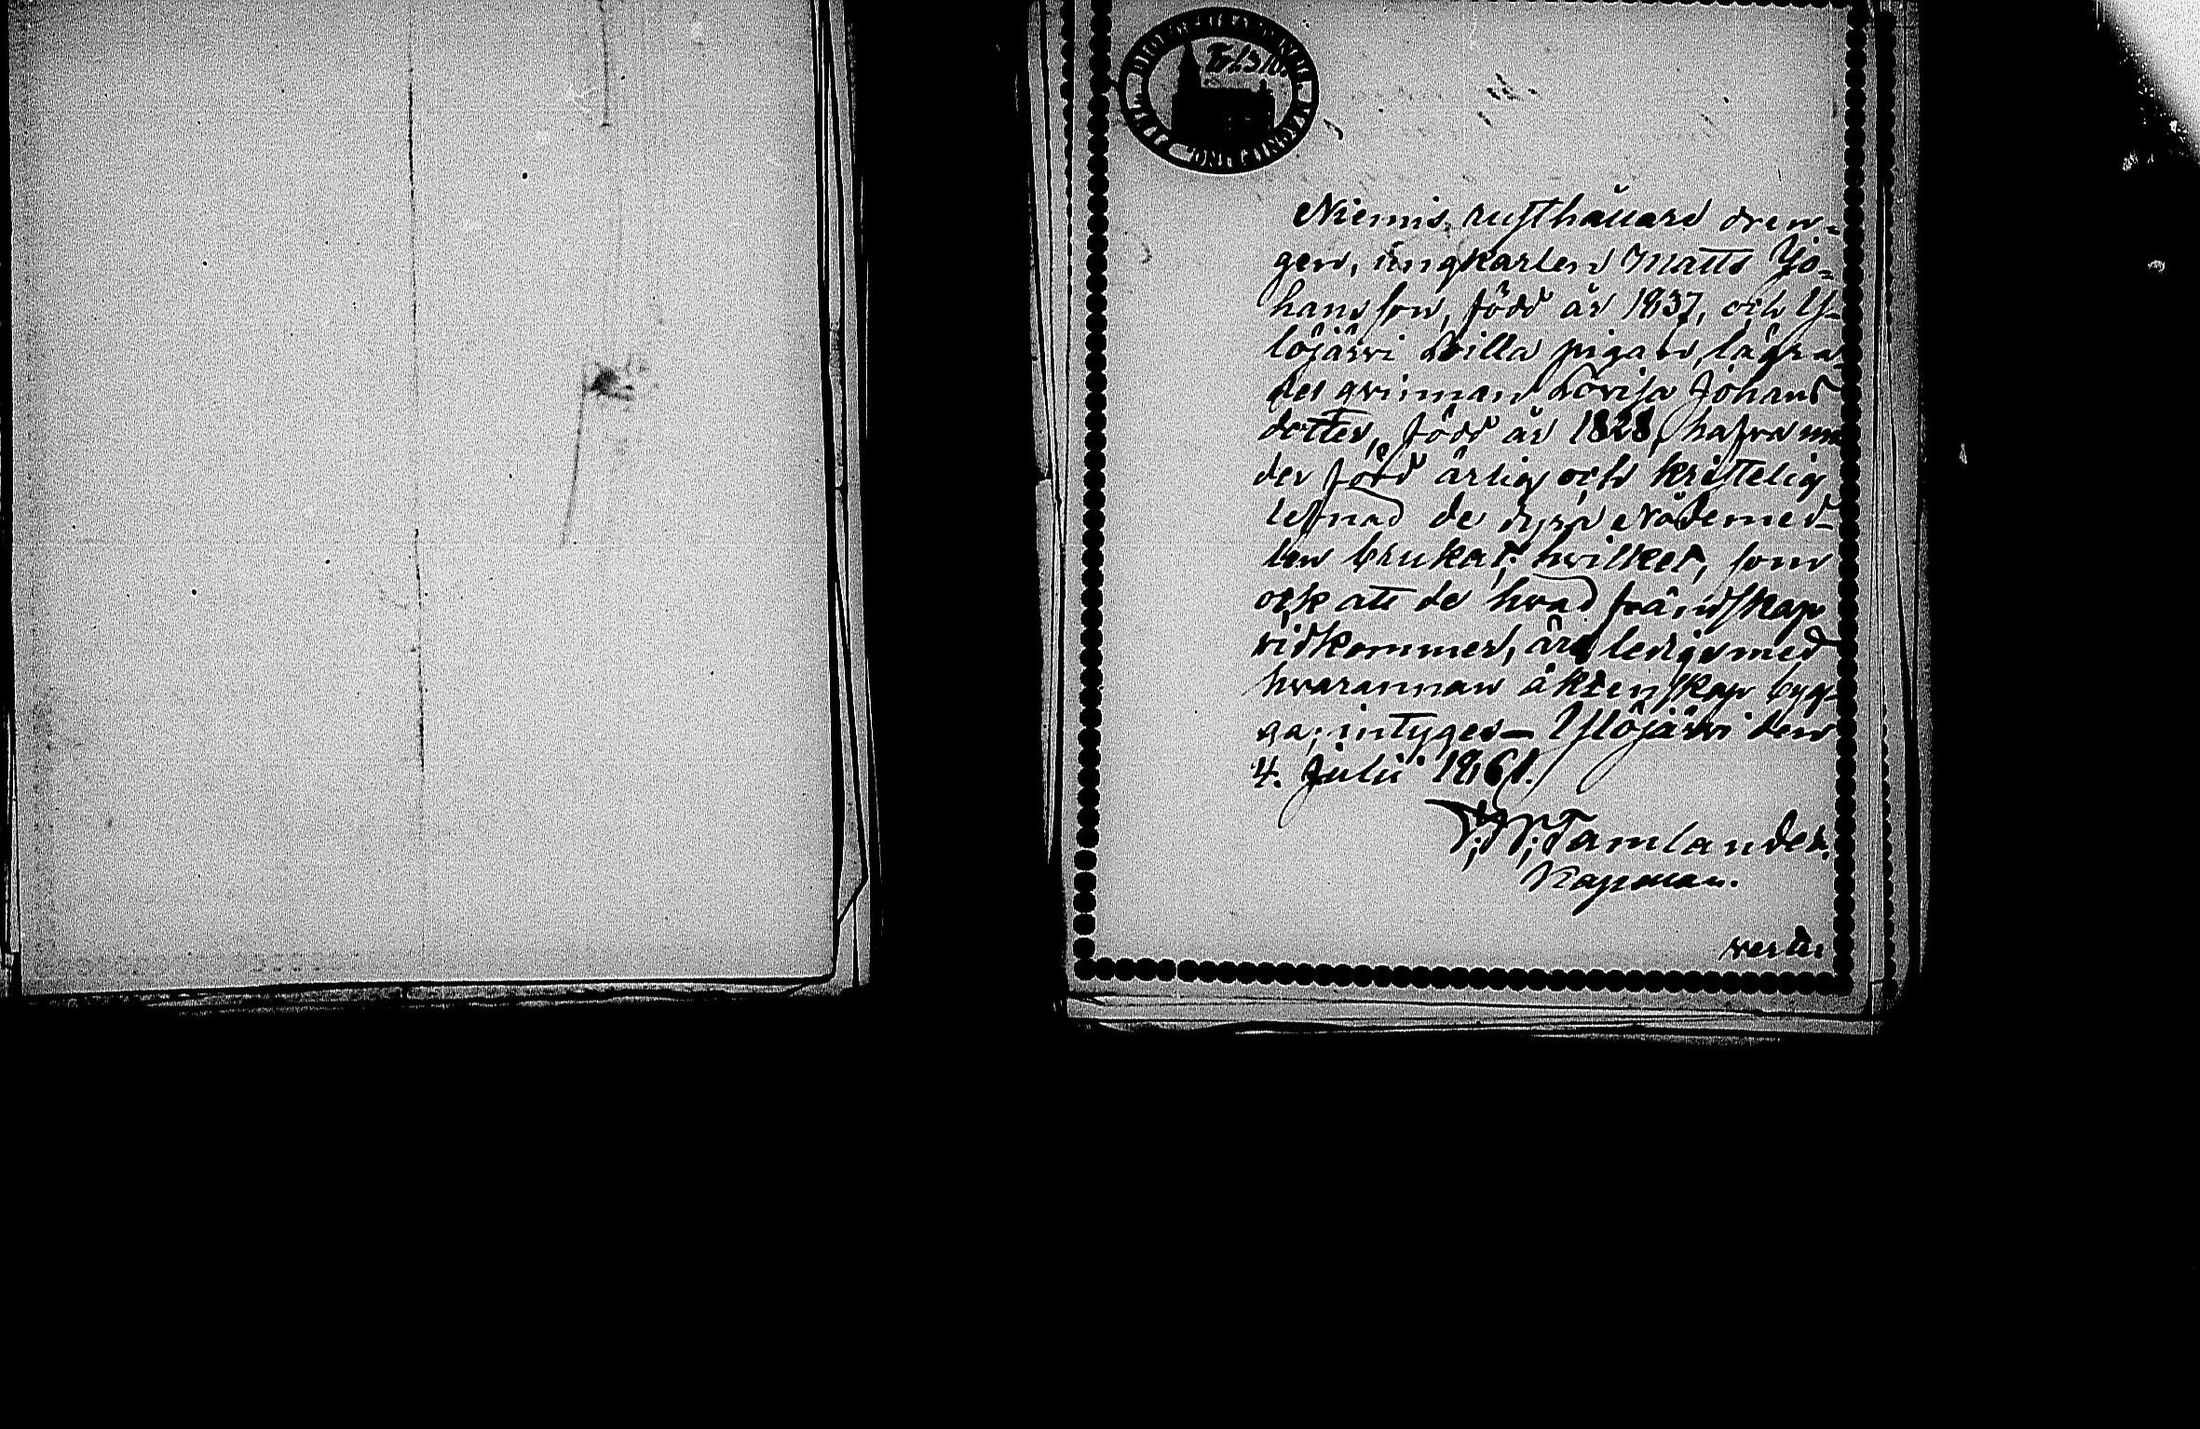 Niemis rusthållare dren-
gen, ungkarlen Matts Jo-
hansson, född år 1837, och Y-
löjärvi Lilla pigan, lägra
des qvinnan Lovisa Johans
dotter, född år 1828, hafva un
der förd ärlig och kristelig
lefnad de dyra Nådemed-
len brukat; hvilket, som
ock att de hvad frändskap
vidkommer, äro lediga med
hvarannan äktenskap byg-
ga; intyges— Ylöjärvi den
4. Julii 1861.
Tamlander.
Kapman.